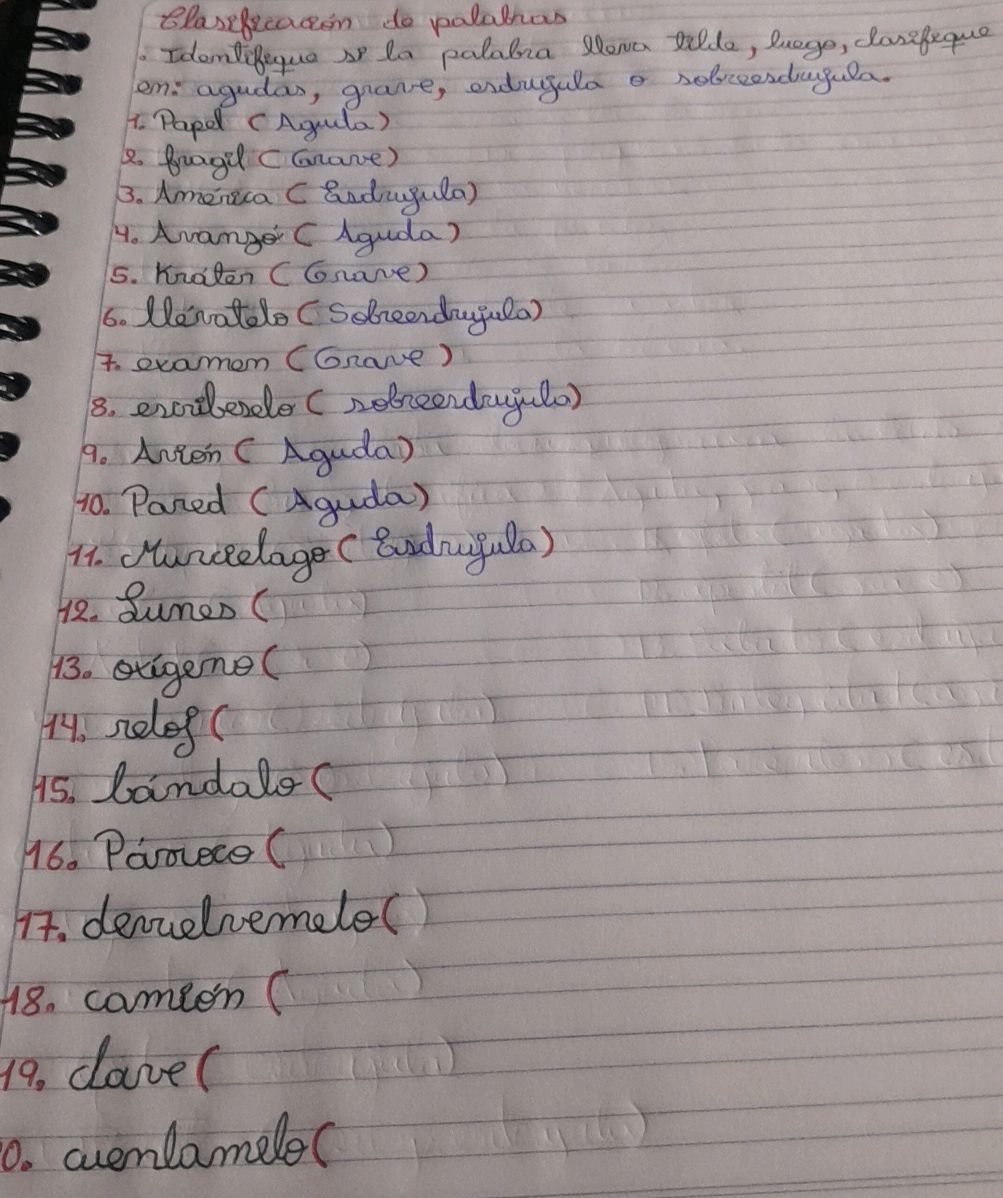 Clasificación de palabras
. Identifique si la palabra lleva tilde, luego, clasifique
en: agudas, grave, esdrujula o sobreesdrujula.
1. Papel (Aguda)
2. fragil (Grave)
3. América (Esdrujula)
4. Avanzó (Aguda)
5. Kráter (Grave)
6. llévatelo (Sobreesdrujula)
7. examen (Grave)
8. escribeselo (sobreesdrujula)
9. Avión (Aguda)
10. Pared (Aguda)
11. Murcielago (Esdrujula)
12. Lunes (
13. oxígeno (
14. reloj (
15. bándalo (
16. Párroco (
17. devuelvemelo ( )
18. camión (
19. clave (
0. cuentamelo (